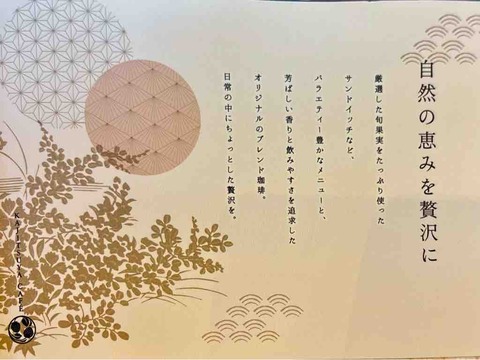 自然の恵みを贅沢に
厳選した旬果実をたっぷり使った
サンドイッチなど、
バラエティー豊かなメニューと、
芳ばしい香りと飲みやすさを追求した
オリジナルのブレンド珈琲。
日常の中にちょっとした贅沢を。
KAJITSUYA CAFE